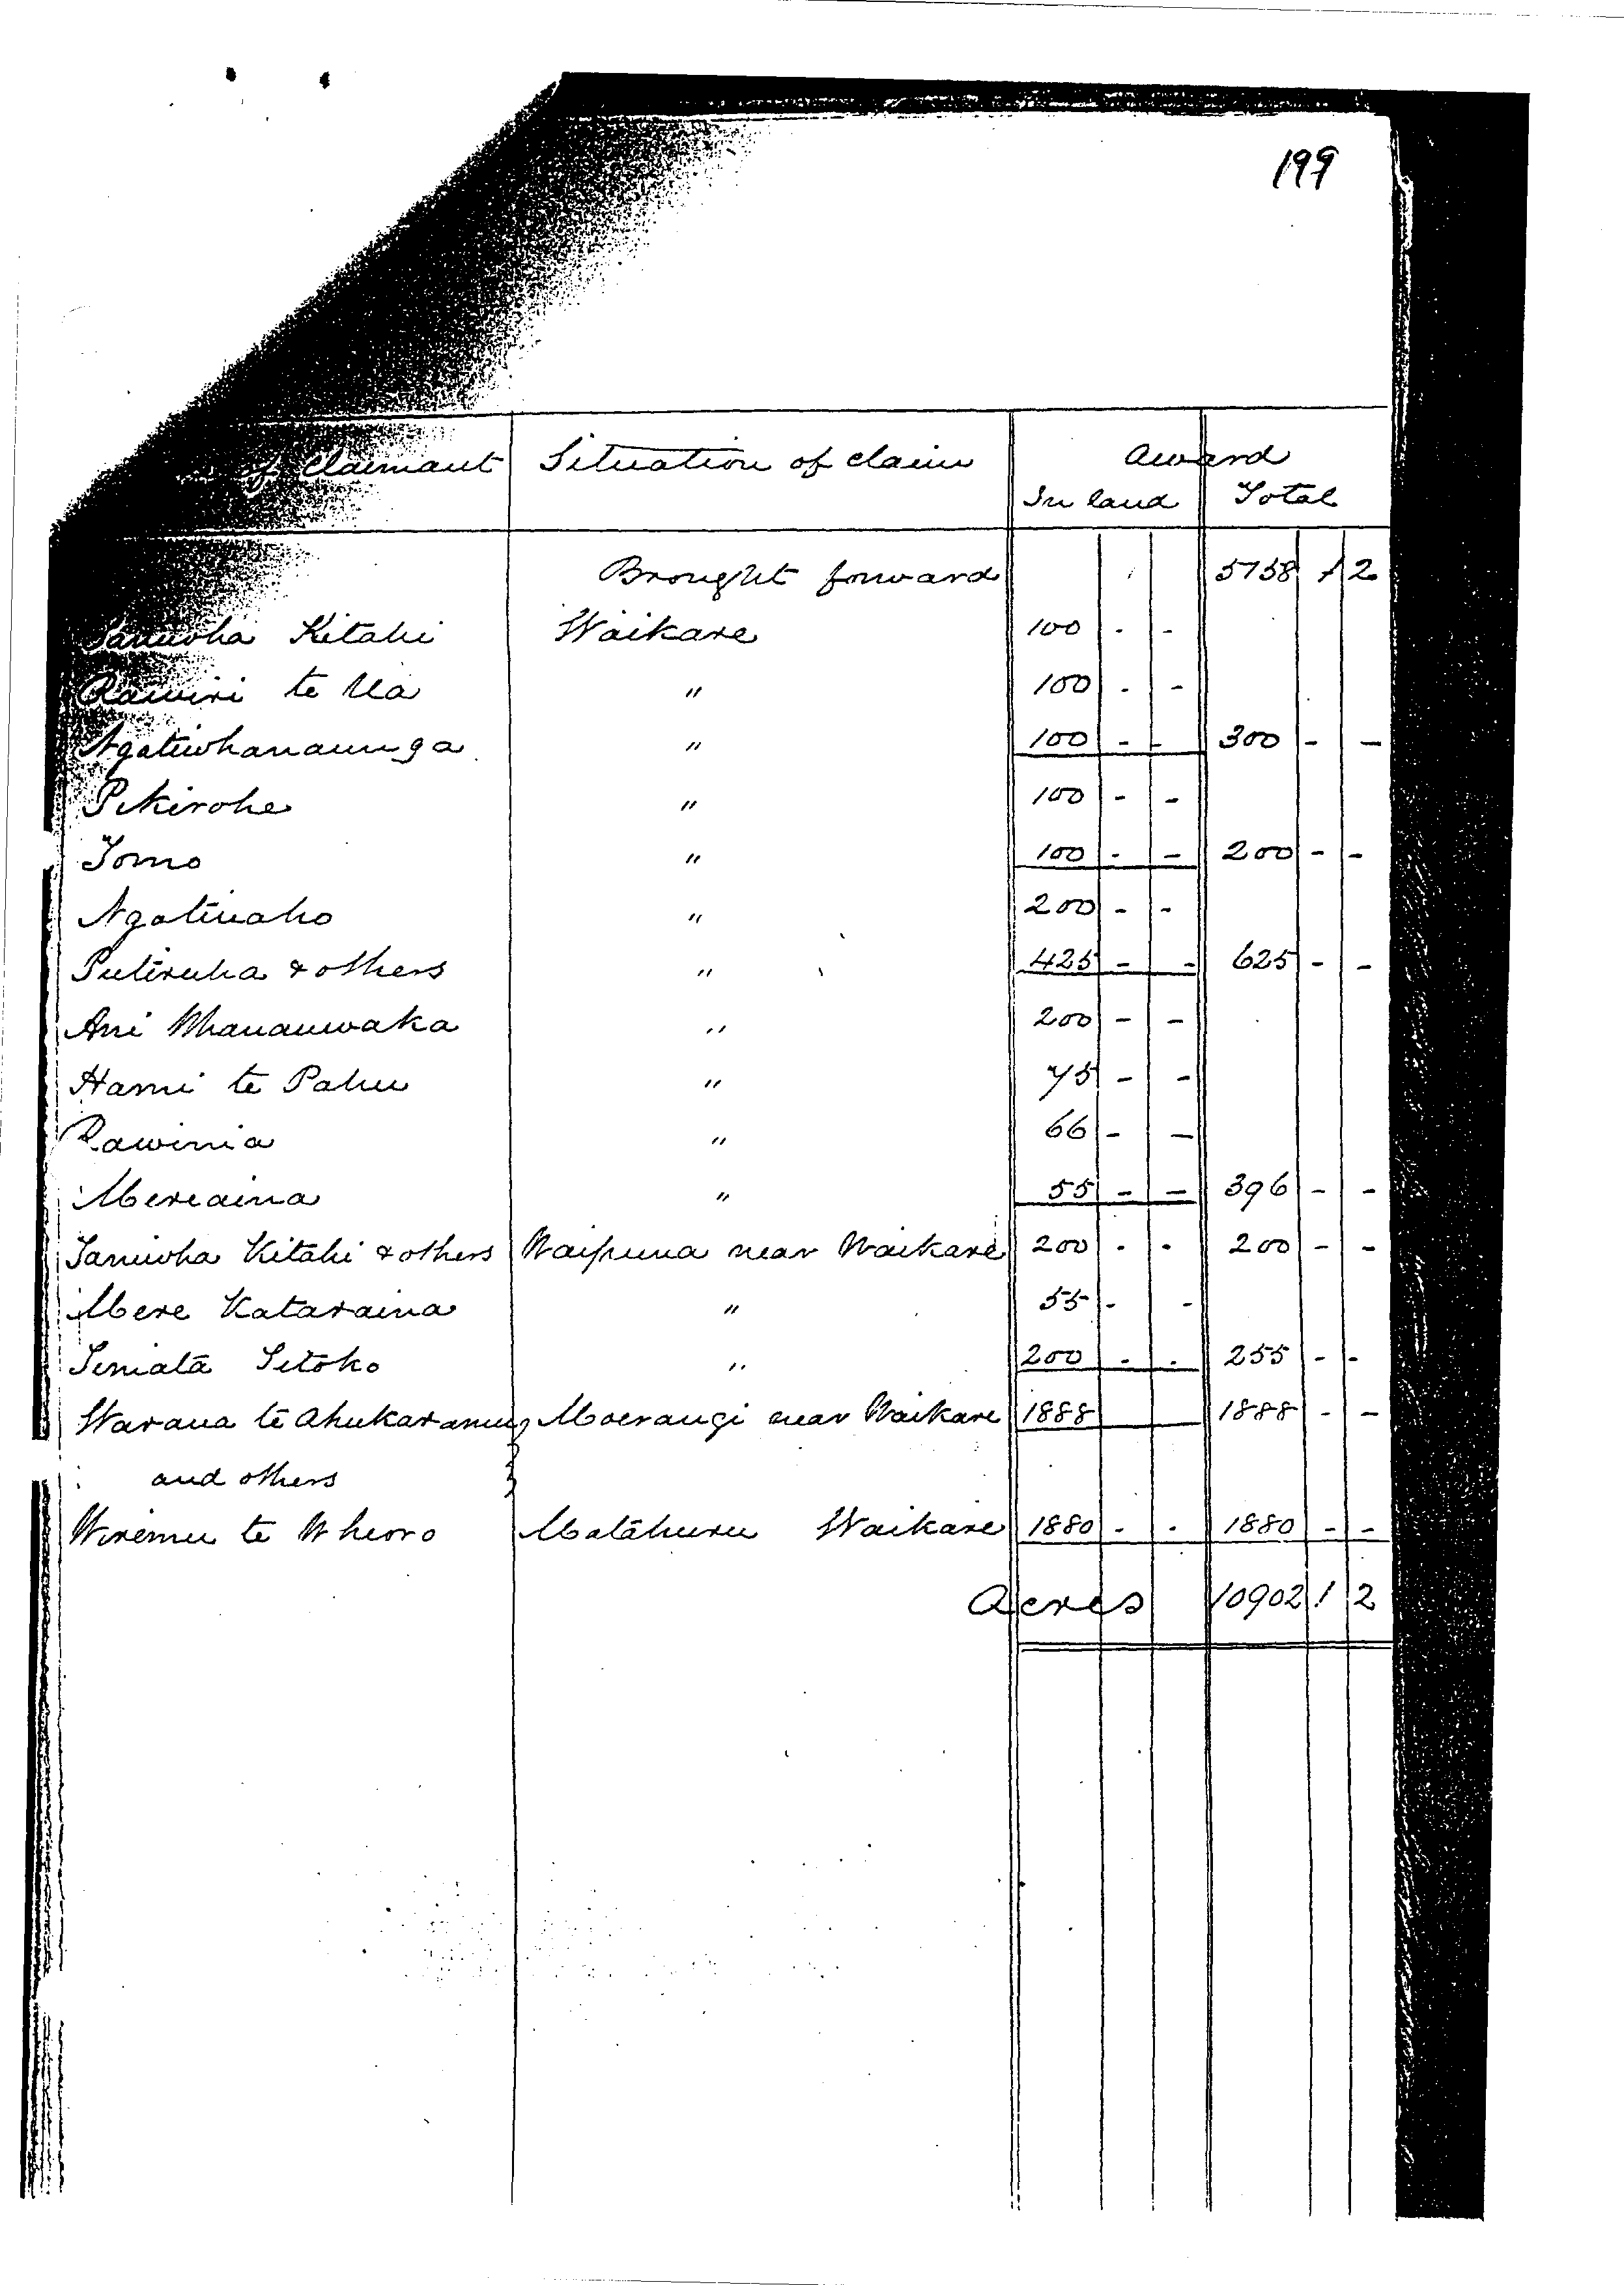 199
of claimant Situation of claim Award
In land Total
Brought forward 5758 1 2
Kitahi Waikare 100 - -
Rawiri te Ua " 100 - -
Ngatiwhanaunga " 100 - - 300 - -
Pikirohe " 100 - -
Tomo " 100 - - 200 - -
Ngatinaho " 200 - -
Putiruha & others " 425 - - 625 - -
Ani Whanauwaka " 200 - -
Hami te Pahu " 75 - -
Rawinia " 66 - -
Mereaina " 55 - - 396 - -
Taniwha Kitahi & others Waipuna near Waikare 200 - - 200 - -
Mere Kataraina " 55 - -
Titoko " 200 - - 255 - -
Warana te Ahukaramu Moerangi near Waikare 1888 1888 - -
and others
Wiremu te Wheoro Matahuru Waikare 1880 - - 1880 - -
Acres 10902 1 2